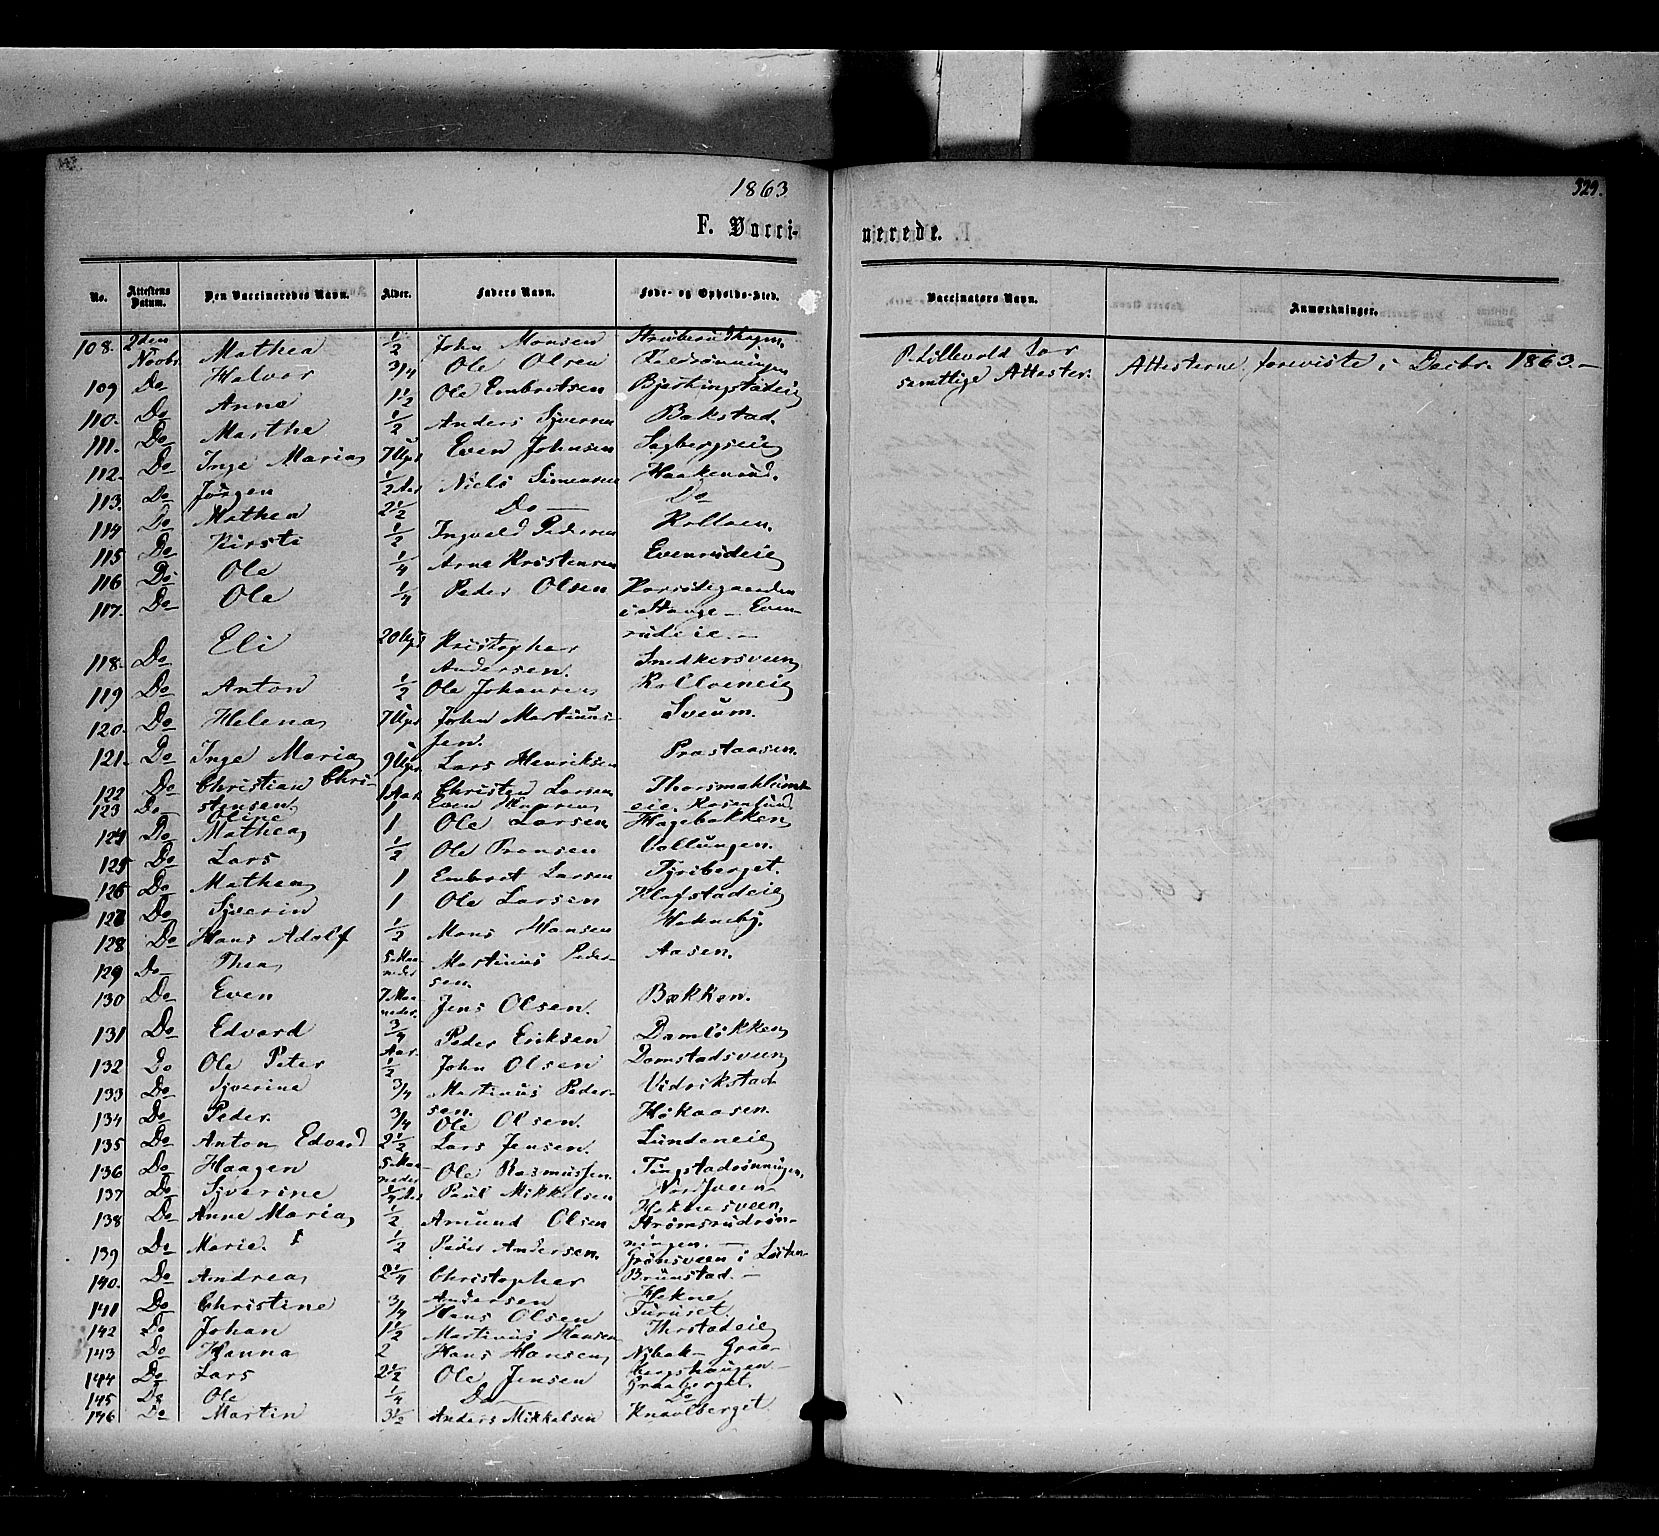 1863
529.
F. Vacci-
nerede.
No. Attestens Datum. Den Vaccineredes Navn. Alder. Faders Navn. Føde- og Opholds-Sted.
Vaccinators Navn. Anmærkninger.
108. 2den Novbr. Mathea 1/2 John Monsen
P. Lillevold for
samtlige Attester.
Attesterne foreviste i Decbr. 1863.—
109 Do Halvor 3/4 Ole Olsen
110. Do Anne 1 1/2 Ole Embretsen
111. Do Marthe 1/2 Anders Syversen Bakstad.
112. Do Inge Maria 7 Uger Even Johnsen Sagbergseie
113. Do Jörgen 1/2 Aar Niels Simensen Haakenrud.
114 Do Mathea 2 1/2 Do — Do
115 Do Kirsti 1/2 Ingvald Pedersen Kolloen.
116 Do Ole 1/4 Arne Kristensen Evenrudeie
117. Do Ole 1/4 Peder Olsen
i Stange — Even-
rudeie. —
118. Do Eli 20 Uger Kristopher
Andersen. Snedkersveen
119 Do Anton 1/2 Ole Johansen Kolloeneie
120. Do Helena 7 Uger John Martinus-
sen. Sveum.
121. Do Inge Maria 9 Uger Lars Henriksen Prestaasen.
122 Do Christian Chri-
stensen 1 Aar Christen Larsen
123 Do Oline 1 Even Rosenlund
124 Do Mathea 1 Ole Larsen Hagebakken
125 Do Lars 1/2 Ole Vollungen.
126 Do Mathea 1 Embret Larsen Tyriberget.
127 Do Syverin 1 Ole Larsen Klæfstadeie
128 Do Hans Adolf 1/2 Mons Hansen Hekneby.
129 Do Thea 5 Maaneder Martinus Peder-
sen. Aasen.
130 Do Even 7 Maaneder. Jens Olsen. Bækken.
131 Do Edvard 3/4 Aar. Peder Eriksen Damløkken
132 Do Ole Peter 1/2 John Olsen Domstadsveen
133 Do Syverine 3/4 Martinus Peder-
sen. Vidrikstad
134 Do Peder. 3/4 Ole Olsen. Høkaasen.
135 Do Anton Edvard 2 1/2 Lars Jensen. Lundeneie
136 Do Haagen 5 Maaneder Ole Rasmussen. Tingstadrønningen.
137 Do Syverine 1/4 Aar Paul Mikkelsen Nordsveen
138 Do Anne Maria 1/2 Amund Olsen Heknesveen,
Strømsrudrøn-
ningen. —
139 Do Marie. 1/2 Peder Andersen. Grønsveen i Løiten
140. Do Andrea 2 1/4 Christopher
Andersen Brunstad. —
141 Do Christine 3/4 Hans Olsen Hekne
Furuset.
142 Do Johan 1 1/2 Martinus Hansen
143 Do Hanna 2 Hans Hansen Nybak — Graa-
bergshaugen —
144 Do Lars 2 1/2 Ole Jensen Graaberget.
145 Do Ole 1/4 Do — Do
146 Do Martin 3 1/2 Anders Mikkelsen Knavlberget